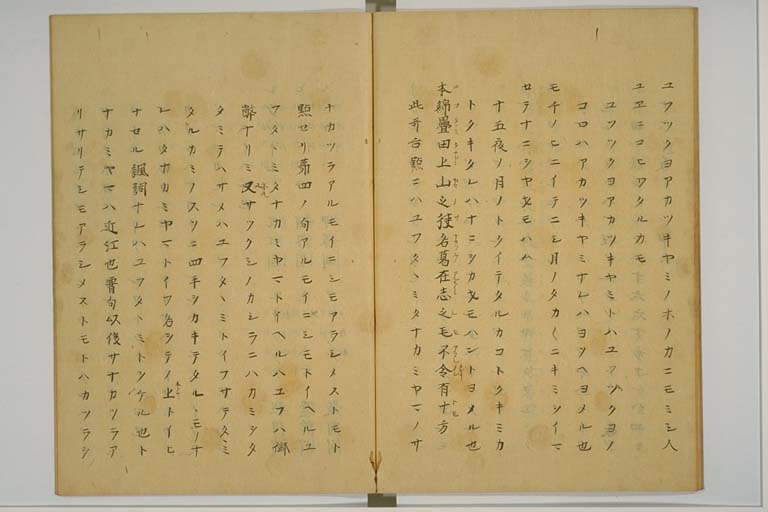 ユフツクヨアカツキヤミノホノカニモミシ人
ユヱニコヒワタルカモ
ユフツクヨアカツキヤミトハユフツクヨノ
コロハアカツキヤミナレハヨソヘヨメル也
モチノヒニイテニシ月ノタカ〱ニキミヲイマ
セテナニヲヤオモハム
十五夜ノ月ノトクイテタルカコトクキミカ
トクキタレハナニヲカオモハントヨメル也
木綿疊田上山之狹名葛在志之毛不令有十方
此哥古點ニハユフタヽミタナカミヤマノサ
ナカツラアルモイニシモアラシメストモト
點セリ第四ノ句アルモイニシモトイヘルユ
フタヽミタナカミヤマトイヘルハユフハ
幣ナリミ又サツクシノカシラニハカミシタ
タミテハサメハユフタヽミトイフサテタミ
タルカミノスソニ四手シカキテタルヽモノナ
レハタナカミヤマトイフ名シテノ上トイヒ
ナセル諷詞ナレハユフタヽミトツヽケル也ト
ナカミヤマハ近江也胷句以後サナカツラア
リサリテシモアラシメストモトハカツラシ